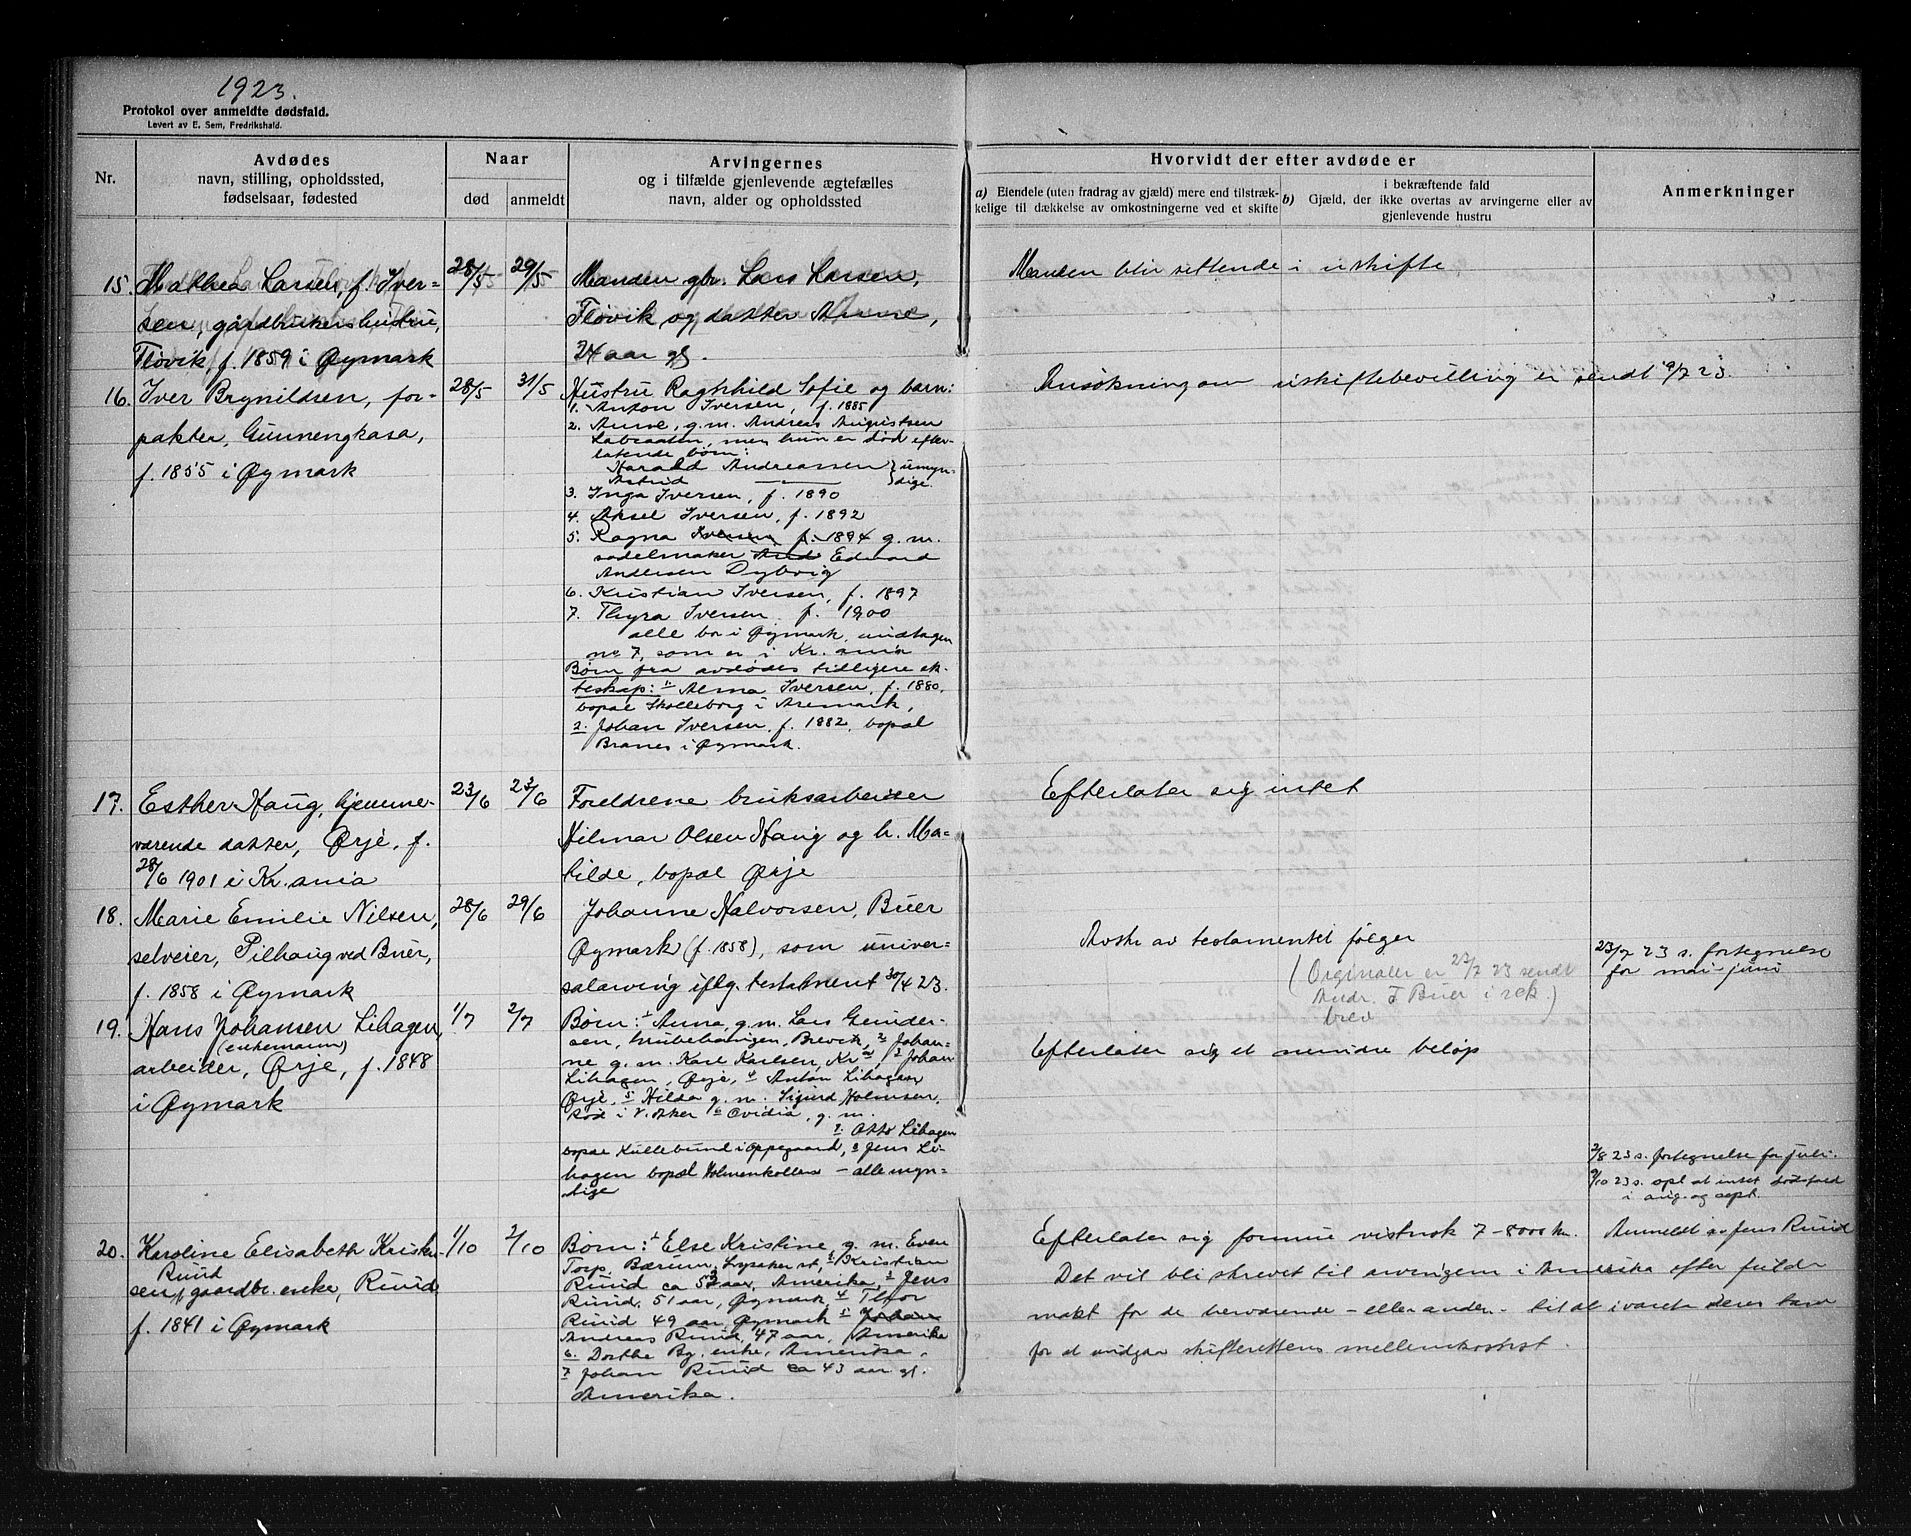 1923.
Protokol over anmeldte dødsfald.
Levert av E. Sem, Fredrikshald.
Nr.
Avdødes
navn, stilling, opholdssted,
fødselsaar, fødested
Naar
død
anmeldt
Arvingernes
og i tilfælde gjenlevende ægtefælles
navn, alder og opholdssted
Hvorvidt der efter avdøde er
a) Eiendele (uten fradrag av gjæld) mere end tilstræk-
kelige til dækkelse av omkostningerne ved et skifte
i bekræftende fald
b) Gjæld, der ikke overtas av arvingerne eller av
gjenlevende hustru
Anmerkninger
15. Mathea Larsen, f. Iver-
sen, gårdbrukers hustru,
Fløvik, f. 1859 i Øymark
28/5
29/5
Manden gbr. Lars Larsen,
Fløvik og datter Anne,
24 aar gl.
Manden blir sittende i uskifte
16. Iver Brynildsen, for-
pakter, Gunnengkasa,
f. 1855 i Øymark
28/5
31/5
Hustru Ragnhild Sofie og barn:
1. Anton Iversen, f. 1885
2. Anne, g.m. Andreas Augustsen
Labraaten, men hun er død efter-
latende børn:
Harald Andreassen } umyn-
Astrid —— } dige.
3. Inga Iversen, f. 1890
4. Aksel Iversen, f. 1892
5. Ragna Iversen f. 1894 g.m.
sadelmaker And Edvard
Andersen Dybvig
6. Kristian Iversen, f. 1897
7. Thyra Iversen f. 1900
alle bor i Øymark, undtagen
no 7, som er i Kr.ania
Børn fra avdødes tidligere ek-
teskap: 1. Alma Iversen, f. 1880,
bopæl Skolleborg i Aremark,
2. Johan Iversen, f. 1882, bopæl
Branes i Øymark.
Ansøkning om uskiftebevilling er sendt 9/7 23.
17. Esther Haug, hjemme-
værende datter, Ørje, f.
28/6 1901 i Kr.ania
23/6
23/6
Foreldrene bruksarbeider
Hilmar Olsen Haug og h. Ma-
tilde, bopæl Ørje
Efterlater sig intet
18. Marie Emilie Nilsen,
selveier, Pilhaug ved Buer,
f. 1858 i Øymark
28/6
29/6
Johanne Halvorsen, Buer
Øymark (f. 1858), som univer-
salarving iflg. testament 30/4 23.
Avskr. av testamentet følger
(Orginaler er 23/7 23 sendt
Andr. F Buer i rek.)
brev
23/7 23 s. fortegnelse
for mai-juni
19. Hans Johansen Lihagen,
(enkemann)
arbeider, Ørje, f. 1848
i Øymark
1/7
2/7
Børn: 1. Anna, g.m. Lars Gunder-
sen, Grubehaugen, Brevik, 2. Johan-
ne g.m. Karl Karlsen, Kr.a, 3. Johan
Lihagen, Ørje, 4. Anton Lihagen
Ørje, 5. Hilda g.m. Sigurd Holmsen,
Rød i V. Aker 6. Ovidia, g.m.
7. Otto Lihagen
bopæl Kullebund i Oppegaard, 8. Jens Li-
hagen bopæl Holmenkollen – alle myn-
dige
Efterlater sig et mindre beløp
2/8 23 s. fortegnelse for juli.
9/10 23 s. opl. at intet dødsfald
i aug. og sept.
20. Karoline Elisabeth Kristen-
Ruud
sen, gaardbr. enke, Ruud
f. 1841 i Øymark
1/10
2/10
Børn: 1. Else Kristine, g.m. Even
Torp, Bærum, Lysaker st, 2. Kristian
Ruud ca 53 aar, Amerika, 3. Jens
Ruud, 51 aar, Øymark 4. Thor
Ruud 49 aar, Øymark 5. Johan
Andreas Ruud, 47 aar, Amerika
6. Dorthe By, enke, Amerika,
7. Johan Ruud ca 43 aar gl.
Amerika.
Efterlater sig formue vistnok 7-8000 kr.
Det vil bli skrevet til arvingerne i Amerika efter fuld-
makt for de herværende – eller anden – til at ivareta deres tarv
for at undgaa skifterettens mellemkomst.
Anmeldt av Jens Ruud